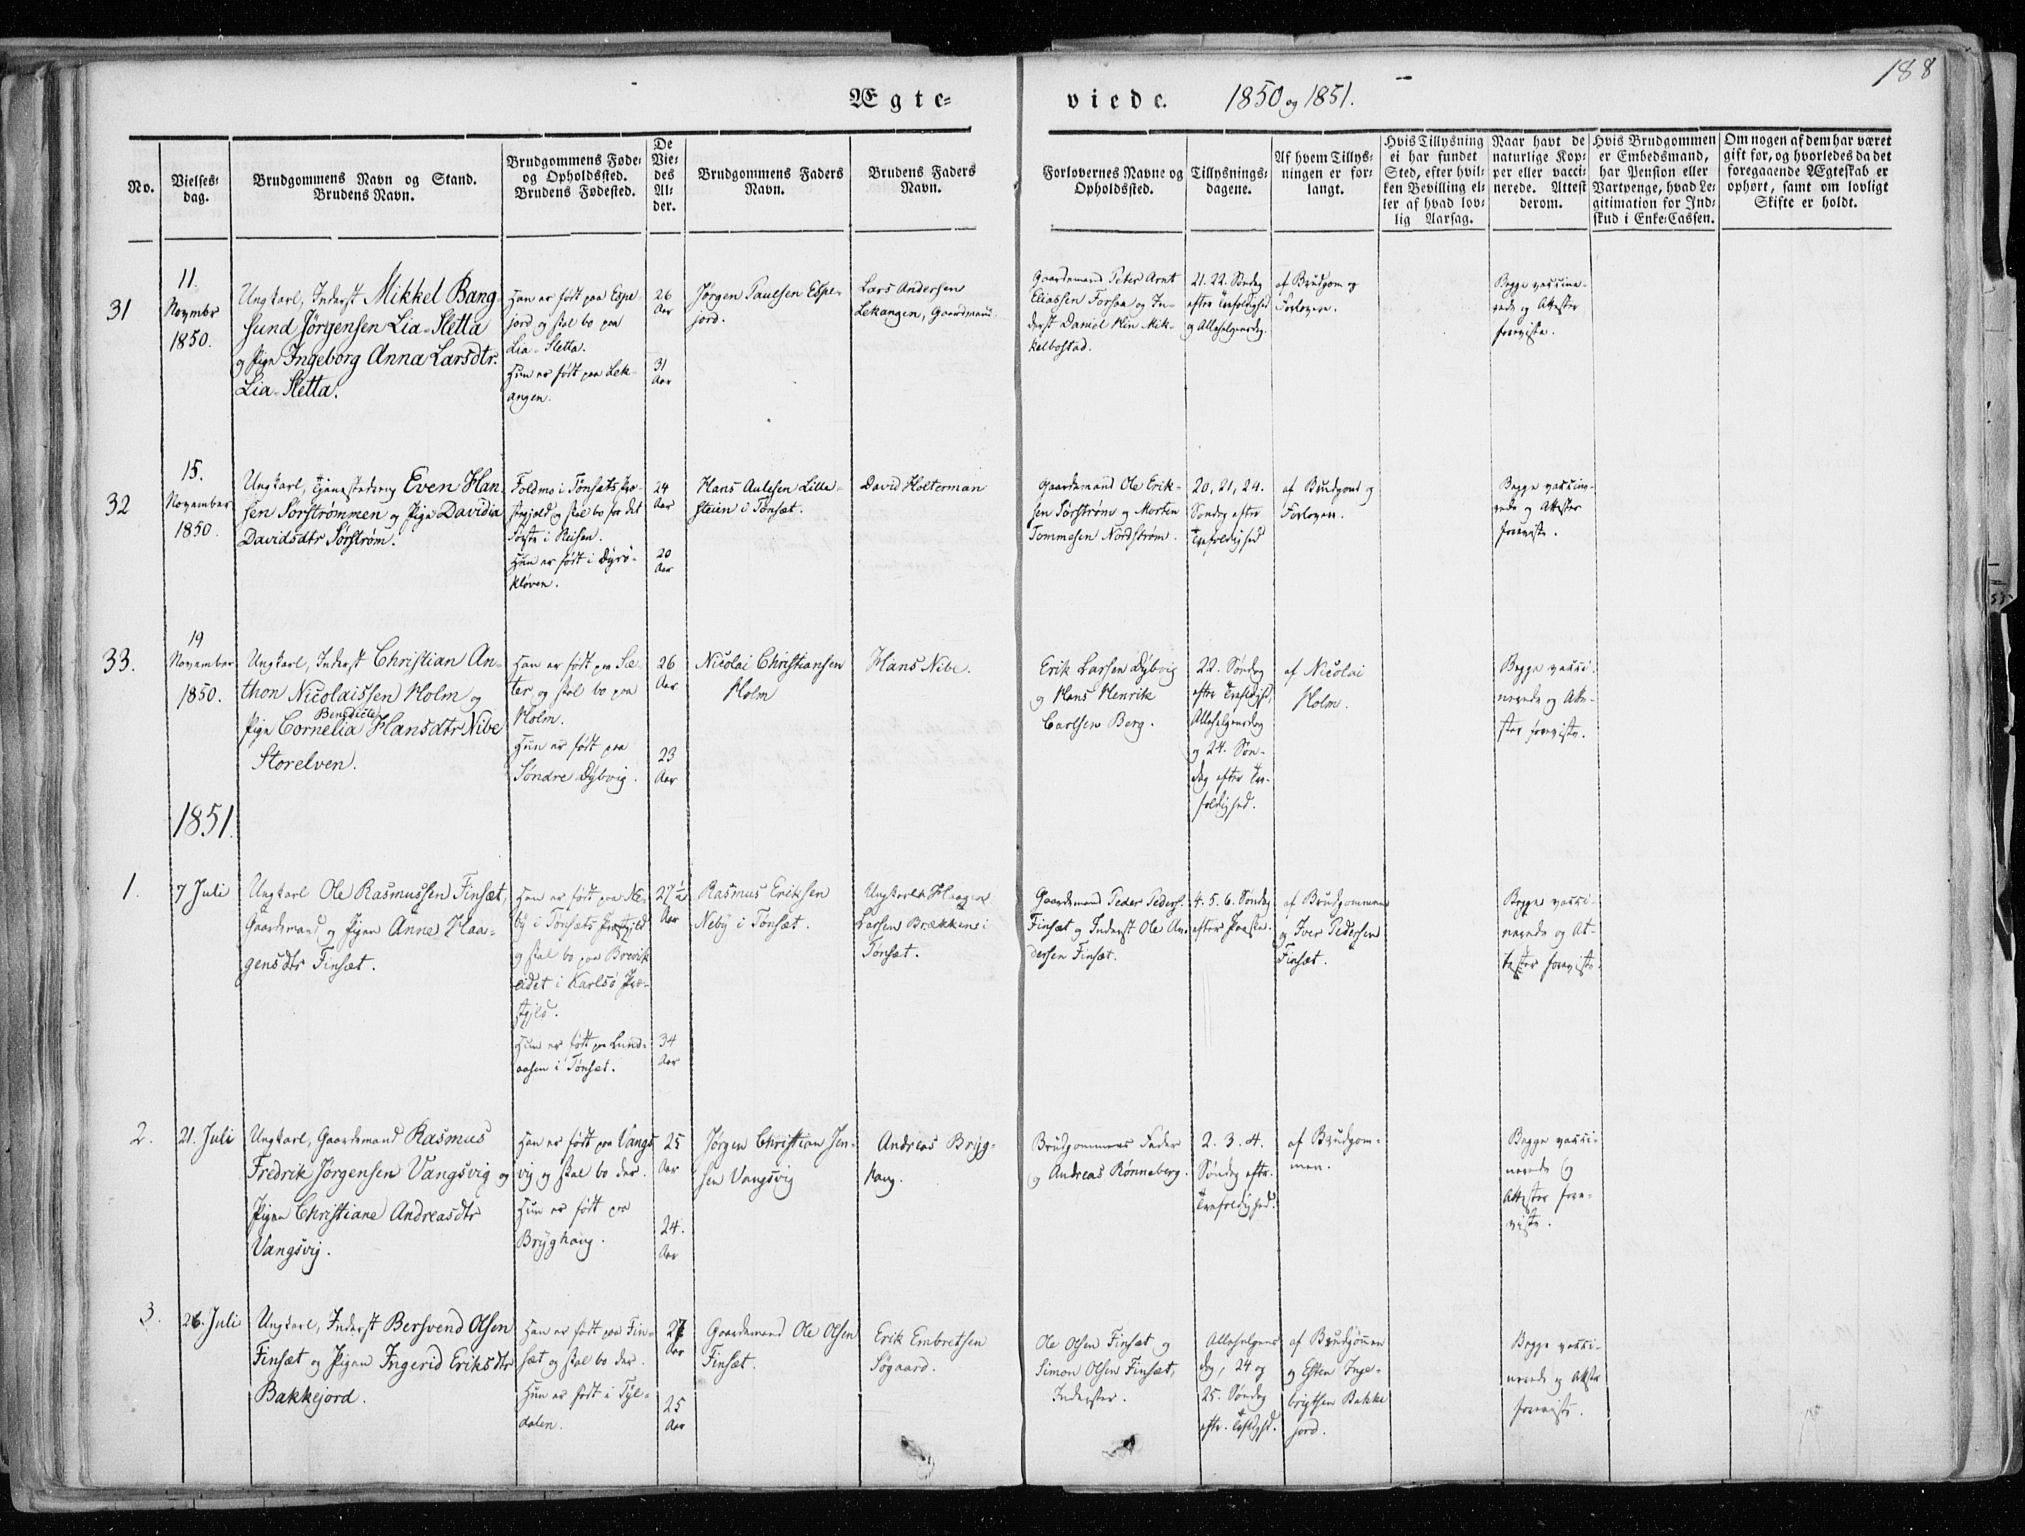 188
Ægte-
viede.
1850 og 1851.
No.
Vielses-
dag.
Brudgommens Navn og Stand.
Brudens Navn.
Brudgommens Føde-
og Opholdssted.
Brudens Fødested.
De
Vie-
des
Al-
der.
Brudgommens Faders
Navn.
Brudens Faders
Navn.
Forlovernes Navne og
Opholdssted.
Tillysnings-
dagene.
Af hvem Tillys-
ningen er for-
langt.
Hvis Tillysning
ei har fundet
Sted, efter hvil-
ken Bevilling el-
ler af hvad lov-
lig Aarsag.
Naar havt de
naturlige Kop-
per eller vacci-
nerede. Attest
derom.
Hvis Brudgommen
er Embedsmand,
har Pension eller
Vartpenge, hvad Le-
gitimation for Ind-
skud i Enke-Cassen.
Om nogen af dem har været
gift før, og hvorledes da det
foregaaende Ægteskab er
ophørt, samt om lovligt
Skifte er holdt.
31
11.
Novmbr
1850.
Ungkarl, Inderst Mikkel Bang
sund Jörgensen Lia-Sletta
og Pige Ingeborg Anna Larsdtr.
Lia-Sletta.
Han er født paa Espe-
jord og skal bo paa
Lia-Sletta.
Hun er født paa Lek-
angen.
26
Aar
31
Aar
Jørgen Paulsen Espe-
jord.
Lars Andersen
Lekangen, Gaardmand.
Gaardmand Peter Arnt
Eliassen Forsaa og In-
derst Daniel Kin Mik-
kelbostad.
21. 22. Søndag
efter Trefoldighed
og Allehelgensdag.
af Brudgom og
Forlovere.
Begge vaccine-
rede og Attester
foreviste.
32
15.
November
1850.
Ungkarl, tjenestedreng Even Han-
sen Sørstrømmen og Pige Davidia
Davidsdtr Sørstrøm.
Foldmo i Tönsæts Præ-
stegjeld og skal bo for det
Første i Reisen.
Hun er født i Dyrö-
kløven.
24
Aar
20
Aar
Hans Aulesen Lille-
steien i Tönsæt.
David Holterman
Gaardmand Ole Erik-
sen Sørstrøm og Morten
Tommesen Nordstrøm.
20, 21, 24.
Søndag efter
Trefoldighed
af Brudgom og
Forlover.
Begge vaccine-
rede og Attester
foreviste.
33.
19
November
1850.
Ungkarl, Inderst Christian An-
thon Nicolaissen Holm og
Benedicte
Pige Cornelia Hansdtr Nibe
Storelven.
Han er født paa Sæ-
ter og skal bo paa
Holm.
Hun er født paa
Søndre Dybvig.
26
Aar
23
Aar
Nicolai Christiansen
Holm
Hans Nibe.
Erik Larsen Dybvig
og Hans Henrik
Carlsen Berg.
22. Søndag
efter Trefoldighed,
Allehelgensdag
og 24. Søn-
dag efter Tre-
foldighed.
af Nicolai
Holm.
Begge vacci-
nerede og Atte-
ster foreviste.
1851.
1.
7 Juli
Ungkarl Ole Rasmussen Finsæt,
Gaardmand og Pigen Anne Haa-
gensdtr Finsæt.
Han er født paa Ne-
by i Tönsæts Præstegjeld
og skal bo paa Brevik
eidet i Karlsö Præ-
stegjeld.
Hun er født paa Lund-
aasen i Tönsæt.
27½
Aar
34
Aar
Rasmus Eriksen
Neby i Tönsæt.
Ungkarl Haagen
Larsen Brækken i
Tonsæt.
Gaardmand Peder Peders.
Finsæt og Inderst Ole An-
dersen Finsæt.
4. 5. 6. Søndag
efter Paaske.
af Brudgommen
og Iver Pedersen
Finsæt.
Begge vacci-
nerede og At-
tester foreviste.
2.
21. Juli
Ungkarl, Gaardmand Rasmus
Fredrik Jørgensen Vangsvig og
Pigen Christiane Andreasdtr
Vangsvig.
Han er født paa Vangs
vig og skal bo der.
Hun er født paa
Bryghaug.
25
Aar
24.
Aar
Jørgen Christian Jen-
sen Vangsvig
Andreas Bryg-
haug.
Brudgommens Fader
og Andreas Rönneberg.
2. 3. 4.
Søndag eftr.
Trefoldighed.
af Brudgom-
men.
Begge vacci-
nerede og
Attester fore-
viste.
3.
26. Juli
Ungkarl, Inderst Bersvend Olsen
Finsæt og Pigen Ingerid Eriksdtr
Bakkejord.
Han er født paa Fin-
sæt og skal bo der.
Hun er født i Tyl-
dalen.
27
Aar
25
Aar
Gaardmand Ole Olsen
Finsæt.
Erik Embretsen
Søgaard.
Ole Olsen Finsæt og
Simon Olsen Finsæt,
Inderster.
Allehelgens
dag, 24 og
25. Søndag
eftr. Trefoldighd.
af Brudgommen
og Esten Inge-
brigtsen Bakke
jord.
Begge vacci-
nerede og Attester
foreviste.